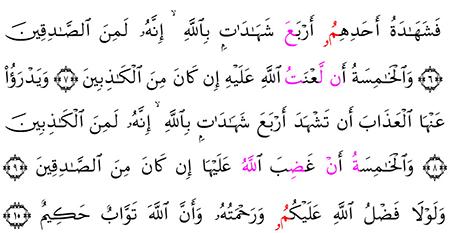 فَشَهَٰدَةُ أَحَدِهِمُۥ أَرْبَعَ شَهَٰدَٰتِۭ بِٱللَّهِ ۙ إِنَّهُۥ لَمِنَ ٱلصَّٰدِقِينَ
﴿٦﴾ وَٱلْخَٰمِسَةُ أَن لَّعْنَتُ ٱللَّهِ عَلَيْهِ إِن كَانَ مِنَ ٱلْكَٰذِبِينَ ﴿٧﴾ وَيَدْرَؤُا۟
عَنْهَا ٱلْعَذَابَ أَن تَشْهَدَ أَرْبَعَ شَهَٰدَٰتِۭ بِٱللَّهِ ۙ إِنَّهُۥ لَمِنَ ٱلْكَٰذِبِينَ
﴿٨﴾ وَٱلْخَٰمِسَةُ أَنْ غَضِبَ ٱللَّهُ عَلَيْهَا إِن كَانَ مِنَ ٱلصَّٰدِقِينَ ﴿٩﴾
وَلَوْلَا فَضْلُ ٱللَّهِ عَلَيْكُمُۥ وَرَحْمَتُهُۥ وَأَنَّ ٱللَّهَ تَوَّابٌ حَكِيمٌ ﴿١٠﴾